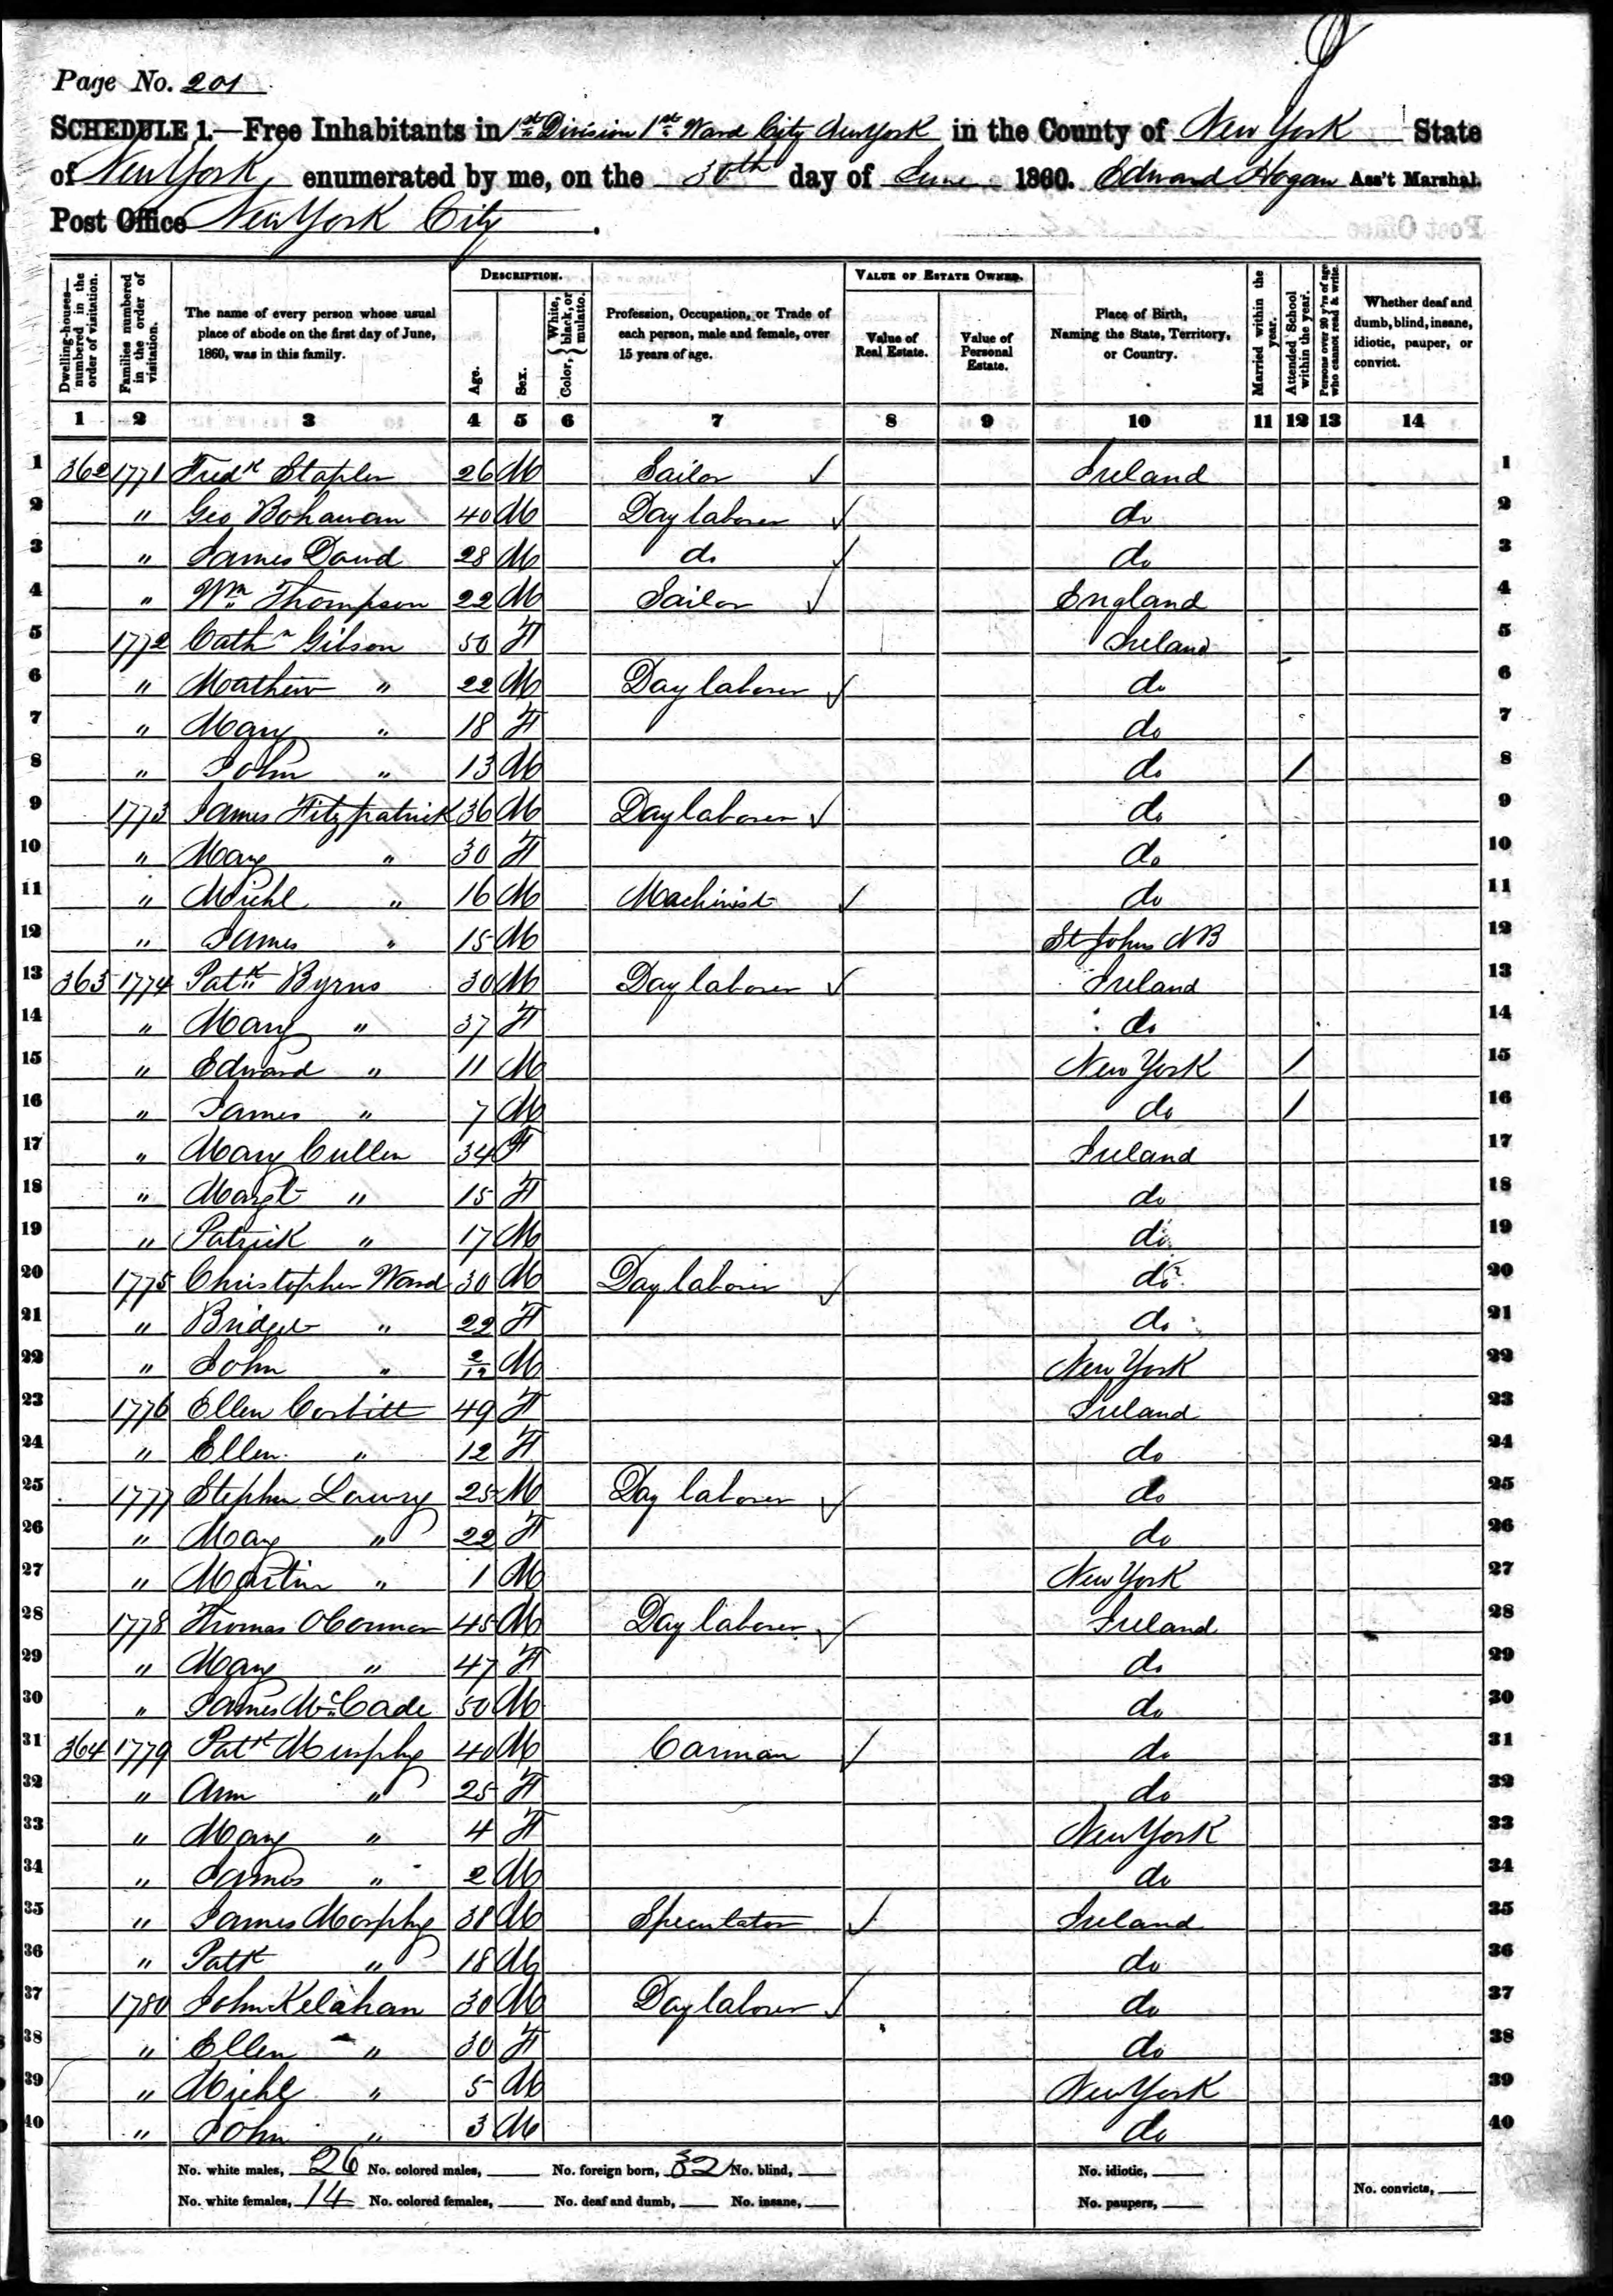 Page No. 201
SCHEDULE 1.—Free Inhabitants in 1st Division 1st Ward City New York in the County of New York State
of New York enumerated by me, on the 30th day of June 1860. Edward Hogan Ass't Marshal.
Post Office New York City.
DESCRIPTION. VALUE OF ESTATE OWNED.
Dwelling-houses—numbered in the order of visitation. Families numbered in the order of visitation. The name of every person whose usual place of abode on the first day of June, 1860, was in this family. Age. Sex. Color, White, black, or mulatto. Profession, Occupation, or Trade of each person, male and female, over 15 years of age. Value of Real Estate. Value of Personal Estate. Place of Birth, Naming the State, Territory, or Country. Married within the year. Attended School within the year. Persons over 20 y'rs of age who cannot read & write. Whether deaf and dumb, blind, insane, idiotic, pauper, or convict.
1 2 3 4 5 6 7 8 9 10 11 12 13 14
1 362 1771 Fredk Stapler 26 M Sailor Ireland 1
2 " Geo Bohawan 40 M Day laborer do 2
3 " James Daud 28 M do do 3
4 " Wm Thompson 22 M Sailor England 4
5 1772 Cathn Gibson 50 F Ireland 5
6 " Mathew " 22 M Day laborer do 6
7 " Mary " 18 F do 7
8 " John " 13 M do / 8
9 1773 James Fitzpatrick 36 M Day laborer do 9
10 " Mary " 30 F do 10
11 " Michl " 16 M Machinist do 11
12 " James " 15 M St Johns NB 12
13 363 1774 Patk Byrns 30 M Day laborer Ireland 13
14 " Mary " 37 F do 14
15 " Edward " 11 M New York / 15
16 " James " 7 M do / 16
17 " Mary Cullen 34 F Ireland 17
18 " Margt " 15 F do 18
19 " Patrick " 17 M do 19
20 1775 Christopher Ward 30 M Day laborer do 20
21 " Bridget " 22 F do 21
22 " John " 2/12 M New York 22
23 1776 Ellen Corbitt 49 F Ireland 23
24 " Ellen " 12 F do 24
25 1777 Stephen Lowry 25 M Day laborer do 25
26 " Mary " 22 F do 26
27 " Martin " 1 M New York 27
28 1778 Thomas OConnor 45 M Day laborer Ireland 28
29 " Mary " 47 F do 29
30 " James McCade 50 M do 30
31 364 1779 Patk Murphy 40 M Carman do 31
32 " Ann " 25 F do 32
33 " Mary " 4 F New York 33
34 " James " 2 M do 34
35 " James Morphy 38 M Speculator Ireland 35
36 " Patk " 18 M do 36
37 1780 John Kelahan 30 M Day laborer do 37
38 " Ellen " 30 F do 38
39 " Michl " 5 M New York 39
40 " John " 3 M do 40
No. white males, 26 No. colored males, No. foreign born, 32 No. blind, No. idiotic,
No. white females, 14 No. colored females, No. deaf and dumb, No. insane, No. paupers, No. convicts,